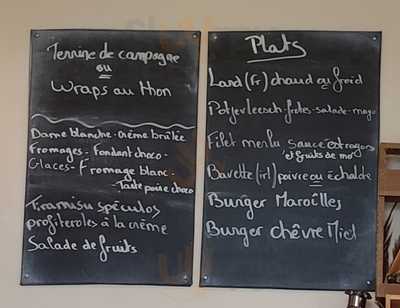 Terrine de campagne
ou
Wraps au thon
Dame blanche - Crème brûlée
Fromages - Fondant choco -
Glaces - Fromage blanc -
Tarte poire choco
Tiramisu spéculos
profiteroles à la crème
Salade de fruits
Plats
Lard (Fr) chaud ou froid
Potjevleesch - frites - salade - mayo
Filet merlu sauce
et fruits de mer
Bavette (irl) poivre ou échalote
Burger Maroilles
Burger chèvre Miel